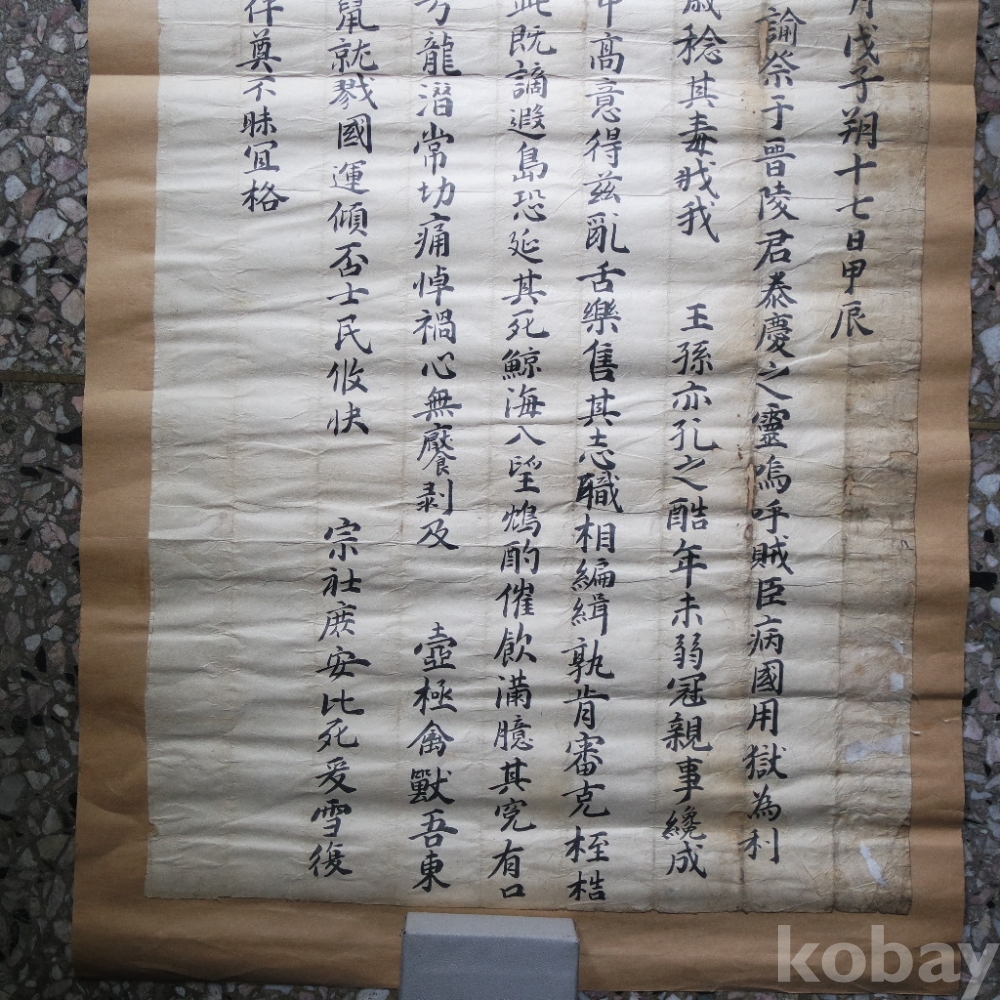 月戊子朔十七日甲辰
諭祭于晋陵君泰慶之靈嗚呼賊臣病國用獄為利
歲稔其毒戕我 王孫亦孔之酷年未弱冠親事纔成
中高意得茲亂舌樂售其志職相編緝孰肯審克桎梏
此既謫遐島恐延其死鯨海八望鴆酌催飲滿臆其寃有口
龍潛常切痛悼禍心無饜剥及 壼極禽獸吾東
就戮國運傾否士民攸快 宗社庶安比死爰雪復
伻奠不昧宜格
kobay